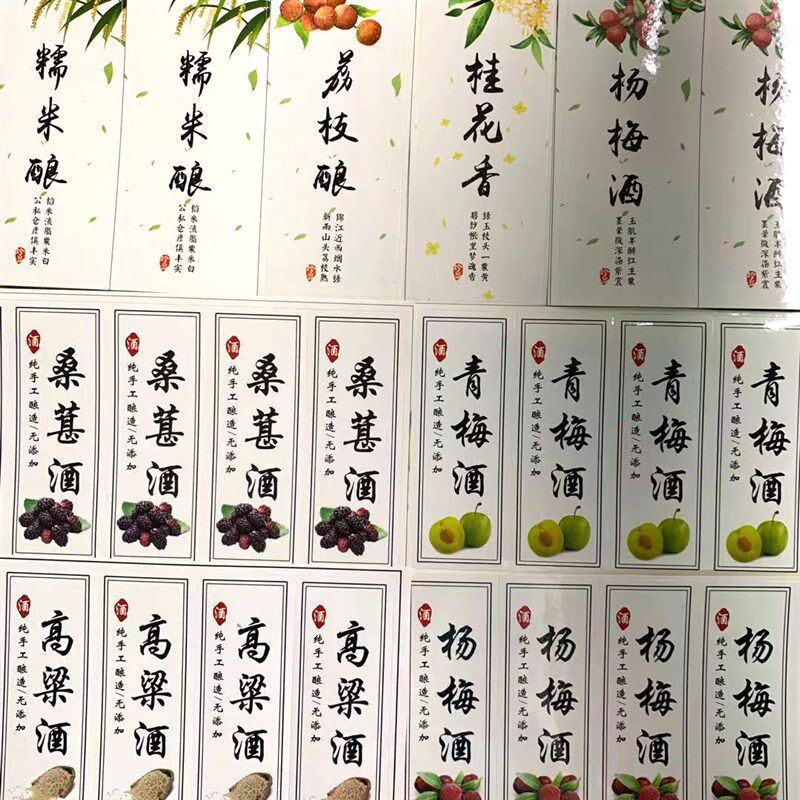 糯米酿
稻米流脂粟米白
公私仓廪俱丰实
糯米酿
稻米流脂粟米白
公私仓廪俱丰实
荔枝酿
锦江近西烟水绿
新雨山头荔枝熟
桂花香
绿玉枝头一粟黄
碧纱帐里梦魂香
杨梅酒
玉肌半醉红生粟
墨晕微深染紫裳
杨梅酒
玉肌半醉红生粟
墨晕微深染紫裳
桑葚酒
酒
纯手工酿造/无添加
桑葚酒
酒
纯手工酿造/无添加
桑葚酒
酒
纯手工酿造/无添加
桑葚酒
酒
纯手工酿造/无添加
青梅酒
酒
纯手工酿造/无添加
青梅酒
酒
纯手工酿造/无添加
青梅酒
酒
纯手工酿造/无添加
青梅酒
酒
纯手工酿造/无添加
高粱酒
酒
纯手工酿造/无添加
高粱酒
酒
纯手工酿造/无添加
高粱酒
酒
纯手工酿造/无添加
高粱酒
酒
纯手工酿造/无添加
杨梅酒
酒
纯手工酿造/无添加
杨梅酒
酒
纯手工酿造/无添加
杨梅酒
酒
纯手工酿造/无添加
杨梅酒
酒
纯手工酿造/无添加